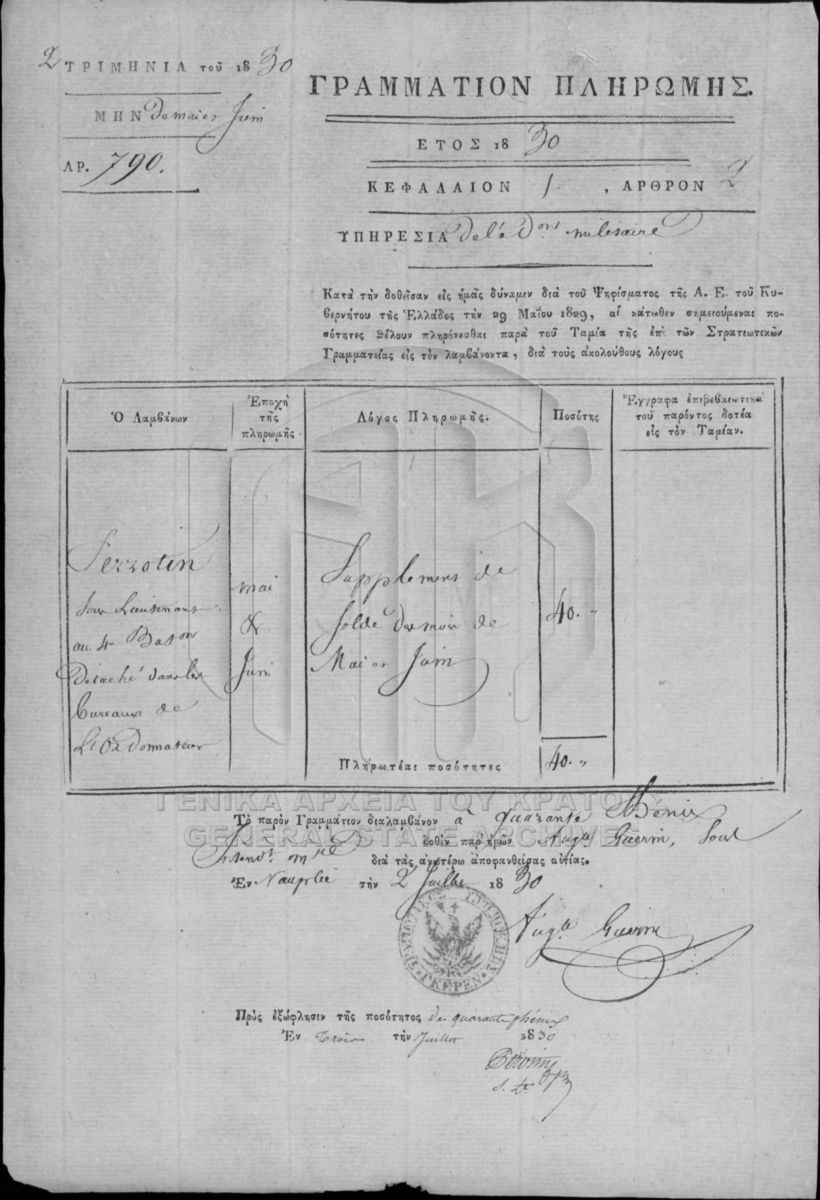 2 ΤΡΙΜΗΝΙΑ τοῦ 1830
ΜΗΝ De mai et Juin
ΑΡ. 790.
ΓΡΑΜΜΑΤΙΟΝ ΠΛΗΡΩΜΗΣ.
ΕΤΟΣ 1830
ΚΕΦΑΛΑΙΟΝ 1, ΑΡΘΡΟΝ 2
ΥΠΗΡΕΣΙΑ De l'o Don militaire
Κατὰ τὴν δοθεῖσαν εἰς ἡμᾶς δύναμιν διὰ τοῦ Ψηφίσματος τῆς Α. Ε. τοῦ Κυ-
βερνήτου τῆς Ἑλλάδος τὴν 29 Μαΐου 1829, αἱ κάτωθεν σημειούμεναι πο-
σότητες θέλουν πληρόνεσθαι παρὰ τοῦ Ταμία τῆς ἐπὶ τῶν Στρατιωτικῶν
Γραμματείας εἰς τὸν λαμβάνοντα, διὰ τοὺς ἀκολούθους λόγους
Ὁ Λαμβάνων
Ἐποχὴ
τῆς
πληρωμῆς
Λόγος Πληρωμῆς.
Ποσότης
Ἔγγραφα ἐπιβεβαιωτικὰ
τοῦ παρόντος δοτέα
εἰς τὸν Ταμίαν.
Sous Lieutenant
au 4e Baton
Détaché dans les
Bureaux de
L'Ordonnateur
mai
&
Juin
Supplement de
solde des mois de
Mai et Juin
40. "
Πληρωτέαι ποσότητες
40. "
ΓΕΝΙΚΑ ΑΡΧΕΙΑ ΤΟΥ ΚΡΑΤΟΥΣ
GENERAL STATE ARCHIVES
Τὸ παρὸν Γραμμάτιον διαλαμβάνον à quarante Phenix
δοθὲν παρ' ἡμῶν Augte Guerin, Sous
Intendt mre διὰ τὰς ἀνωτέρω ἀποφανθείσας αἰτίας.
Ἐν Nauplie τὴν 2 Juillet 1830
Augte Guerin
Πρὸς ἐξώφλησιν τῆς ποσότητος de quarante phénix
Ἐν trois τὴν Juillet 1830